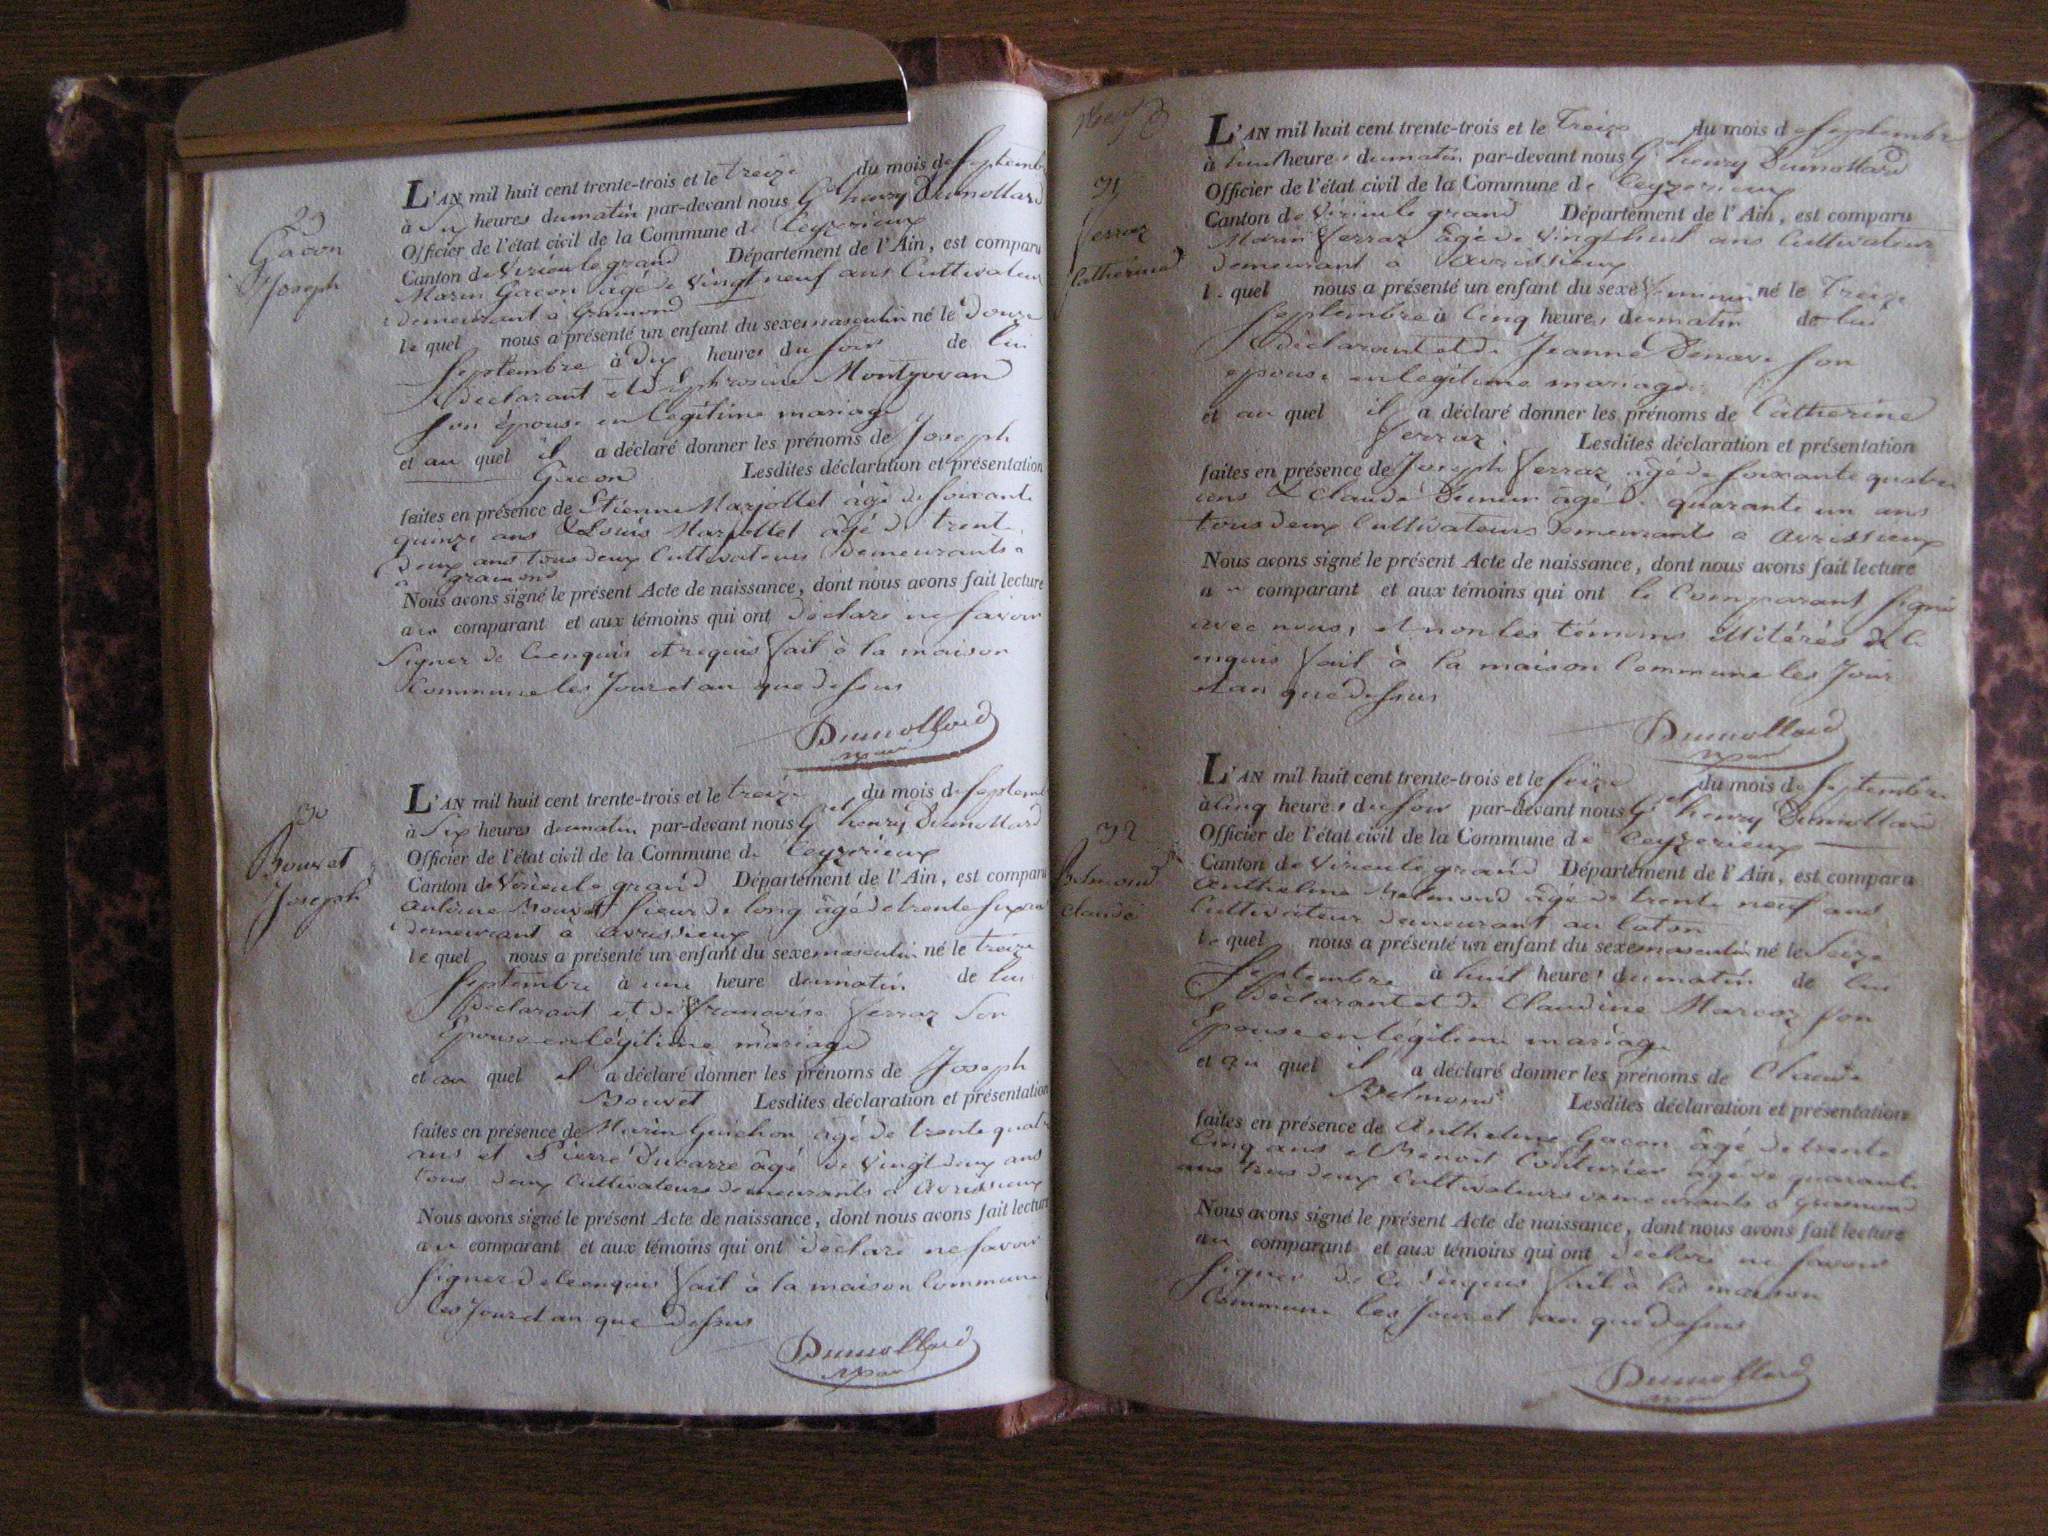 29
Gacon
Joseph
L'AN mil huit cent trente-trois et le treize du mois de septembre
à Six heures dumatin par-devant nous Gel henry Dumollard
Officier de l'état civil de la Commune de Ceyzerieux
Canton de Virieu le grand Département de l'Ain, est comparu
Marin Gacon âgé de vingt neuf ans Cultivateur
demeurant à Gramond
lequel nous a présenté un enfant du sexe masculin né le Douze
septembre à Dix heures du soir de lui
Déclarant et d'Ephrosine Montyovan
son épouse en legitime mariage
et au quel il a déclaré donner les prénoms de Joseph
Gacon Lesdites déclaration et présentation
faites en présence de Etienne Marjollet âgé de soixante
quinze ans & Louis Marjollet âgé de trente
deux ans tous deux Cultivateurs Demeurants à
a gramond
Nous avons signé le présent Acte de naissance, dont nous avons fait lecture
au comparant et aux témoins qui ont déclaré ne savoir
signer de ce enquis et requis fait à la maison
Commune les Jour et an que dessus
Dumollard
30
Bouvet
Joseph
L'AN mil huit cent trente-trois et le treize du mois de septembre
à Six heures dumatin par-devant nous Gel henry Dumollard
Officier de l'état civil de la Commune de Ceyzerieux
Canton de Virieu le grand Département de l'Ain, est comparu
antoine Bouvet sieur de long âgé de trente six ans
demeurant a avrissieux
lequel nous a présenté un enfant du sexe masculin né le treize
septembre à une heure dumatin de lui
Déclarant et de françoise ferraz son
Epouse en légitime mariage
et au quel il a déclaré donner les prénoms de Joseph
Bouvet Lesdites déclaration et présentation
faites en présence de Marin Guichon âgé de trente quatre
ans et Pierre Ducarre âgé de vingt deux ans
tous deux Cultivateurs demeurants a avrissieux
Nous avons signé le présent Acte de naissance, dont nous avons fait lecture
au comparant et aux témoins qui ont déclaré ne savoir
signer de ce enquis fait à la maison Commune
les Jour et an que dessus
Dumollard
31
ferraz
Catherine
L'AN mil huit cent trente-trois et le Treize du mois de septembre
à huit heures dumatin par-devant nous Gel henry Dumollard
Officier de l'état civil de la Commune de Ceyzerieux
Canton de Virieu le grand Département de l'Ain, est comparu
Marin ferraz âgé de vingt huit ans Cultivateur
demeurant à avrissieux
lequel nous a présenté un enfant du sexe féminin né le Treize
septembre à Cinq heures dumatin de lui
Déclarant et de Jeanne son
epouse en legitime mariage
et au quel il a déclaré donner les prénoms de Catherine
ferraz. Lesdites déclaration et présentation
faites en présence de Joseph ferraz âgé de soixante quatre
ans & Claude âgé de quarante un ans
tous deux Cultivateurs demeurants a avrissieux
Nous avons signé le présent Acte de naissance, dont nous avons fait lecture
au comparant et aux témoins qui ont le Comparant signé
avec nous, et non les témoins illitérés de ce
enquis fait à la maison Commune les Jour
et an que dessus
Dumollard
32
Belmond
Claude
L'AN mil huit cent trente-trois et le seize du mois de septembre
à Cinq heures du soir par-devant nous Gel henry Dumollard
Officier de l'état civil de la Commune de Ceyzerieux
Canton de Virieu le grand Département de l'Ain, est comparu
anthelme Belmond âgé de trente neuf ans
Cultivateur demeurant au laton
lequel nous a présenté un enfant du sexe masculin né le Seize
septembre à huit heures dumatin de lui
Déclarant et de Claudine Marcoz son
Epouse en légitime mariage
et au quel il a déclaré donner les prénoms de Claude
Belmond Lesdites déclaration et présentation
faites en présence de Anthelme Gacon âgé de trente
Cinq ans et Benoit Couturier âgé de quarante
ans tous deux Cultivateurs demeurants a gramond
Nous avons signé le présent Acte de naissance, dont nous avons fait lecture
au comparant et aux témoins qui ont declaré ne savoir
signer de ce enquis fait à la maison
Commune les Jour et an que dessus
Dumollard